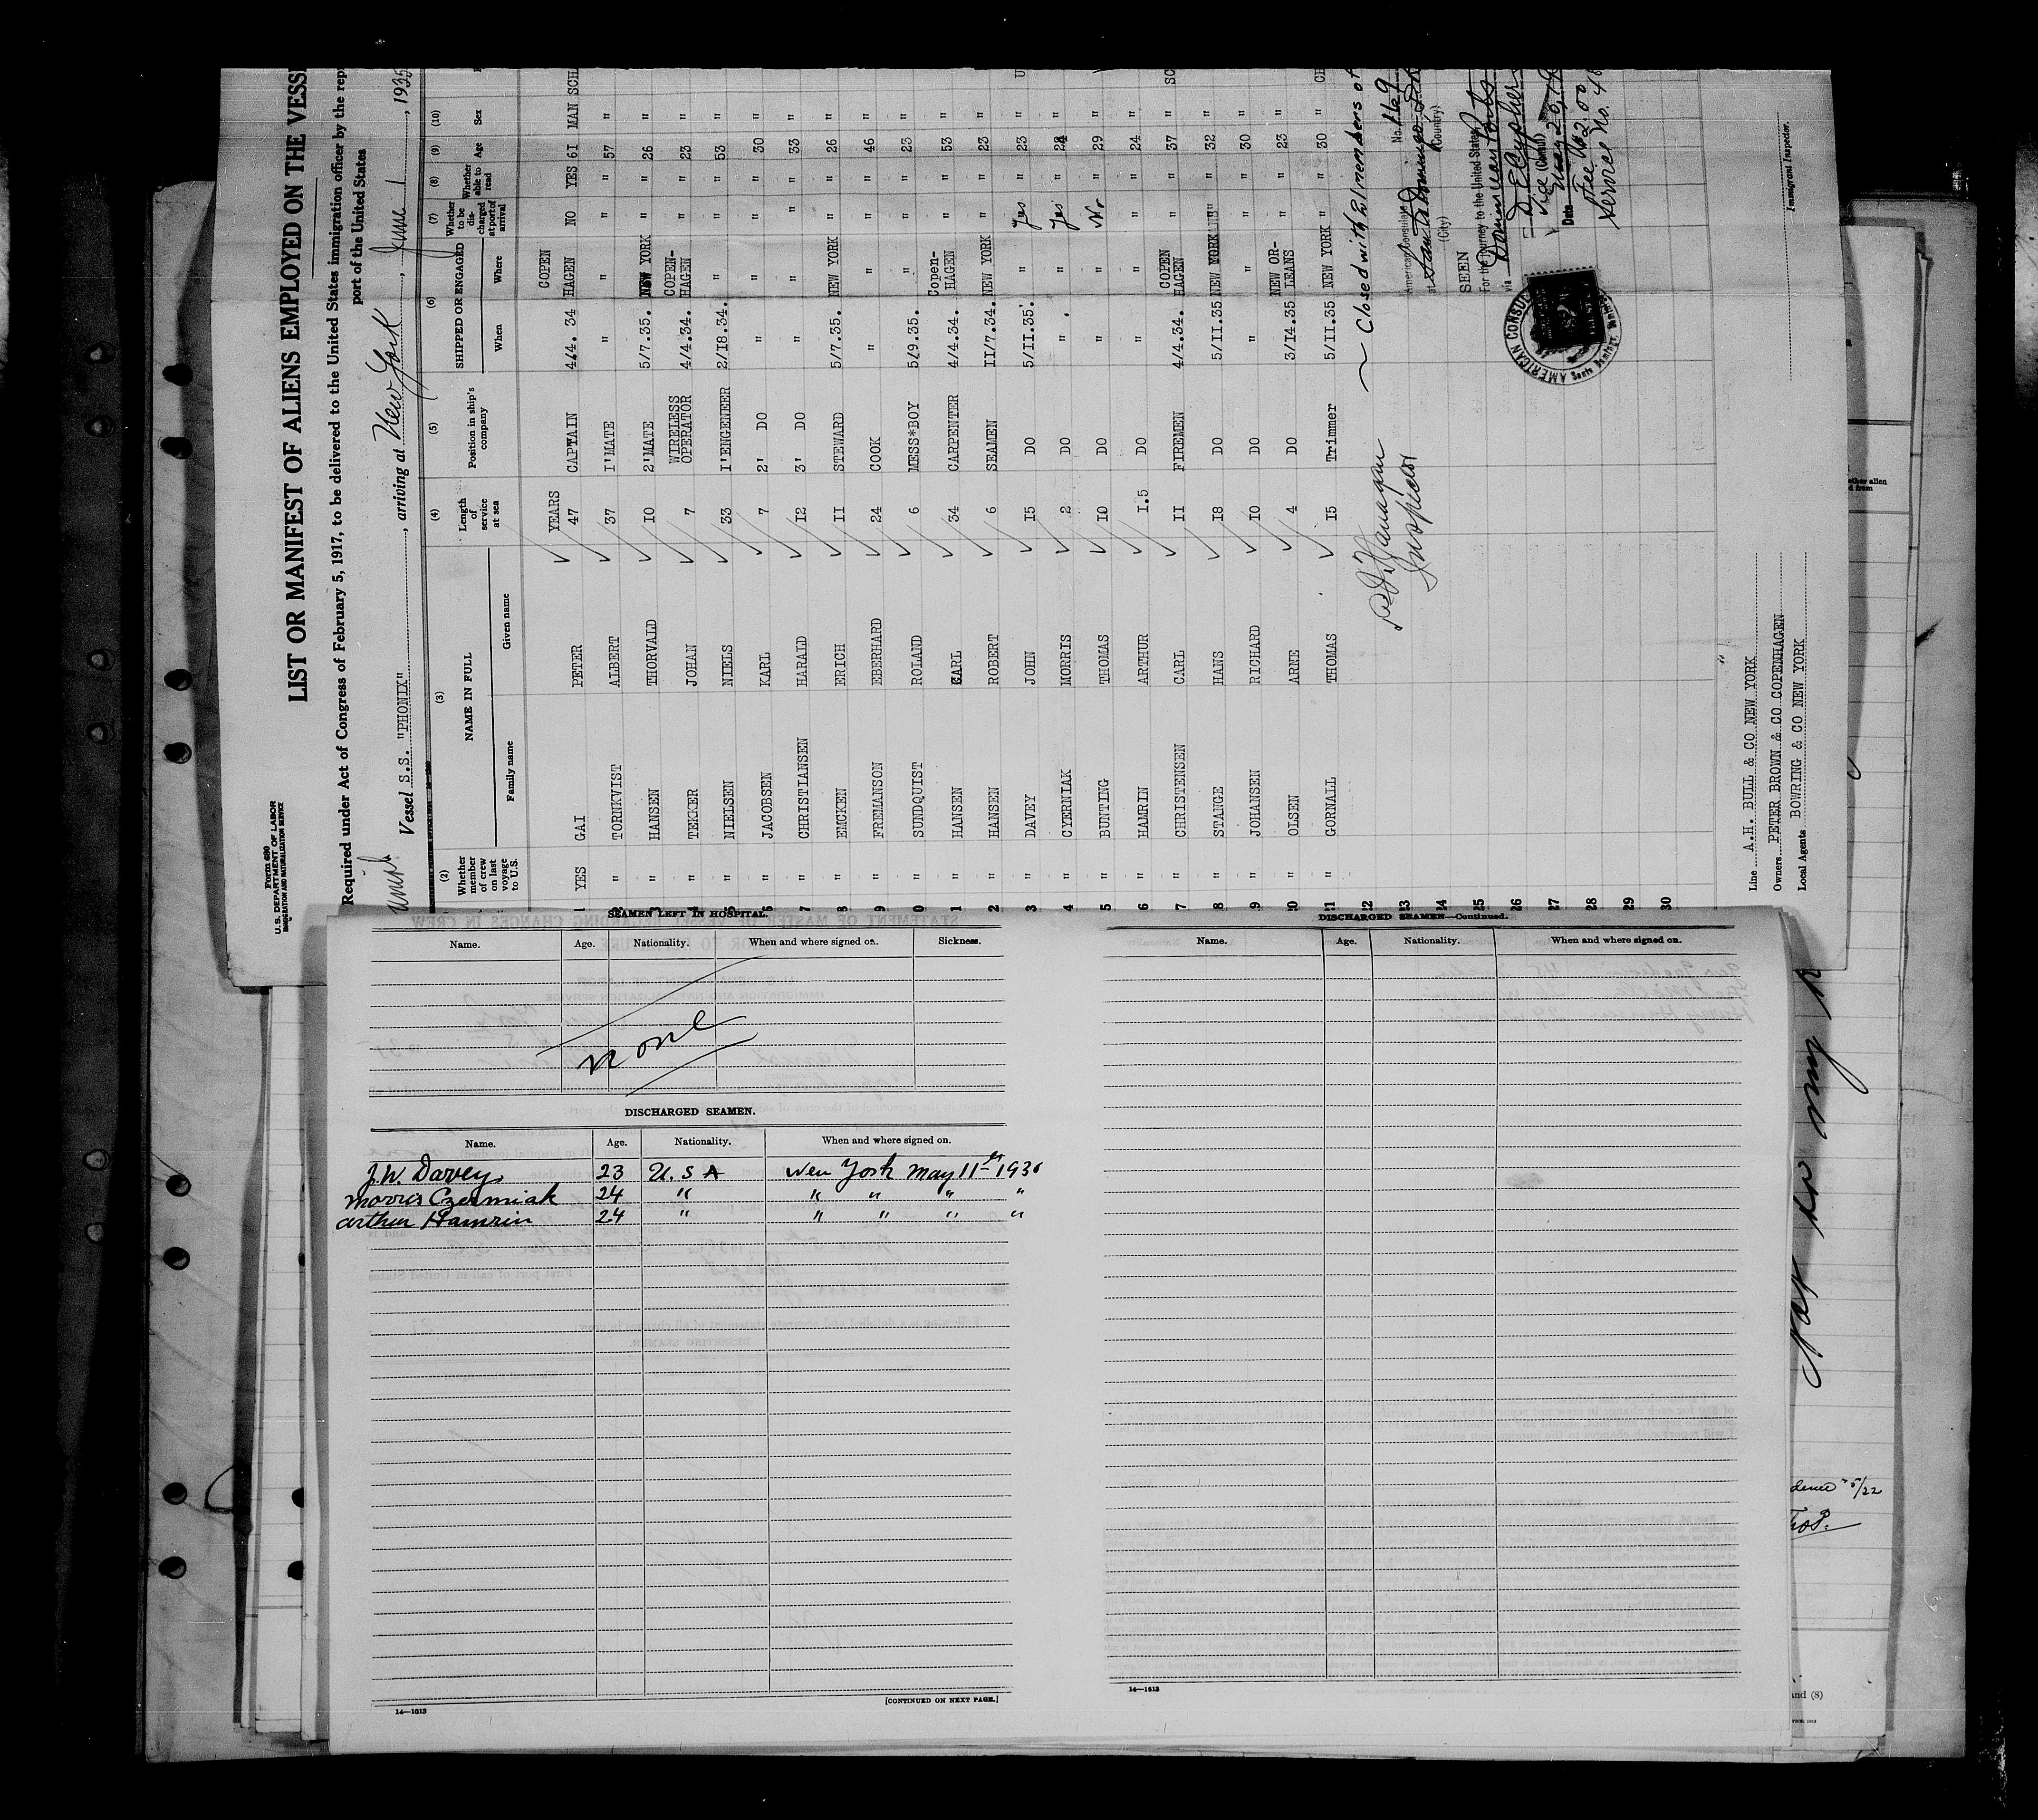 Form 680
U. S. DEPARTMENT OF LABOR
IMMIGRATION AND NATURALIZATION SERVICE
LIST OR MANIFEST OF ALIENS EMPLOYED ON THE VESS
Required under Act of Congress of February 5, 1917, to be delivered to the United States immigration officer by the rep
port of the United States
Vessel S.S. "PHONIX", arriving at New York, June 1, 1935
(2) (3) (4) (5) (6) (7) (8) (9) (10)
Whether member of crew on last voyage to U.S. NAME IN FULL Family name Given name Length of service at sea Position in ship's company SHIPPED OR ENGAGED When Where Whether to be discharged at port of arrival Whether able to read Age Sex
YEARS
1 YES GAI PETER 47 CAPTAIN 4/4. 34 COPEN HAGEN NO YES 61 MAN SCH
2 " TORNKVIST ALBERT 37 I'MATE " " " " 57 "
3 " HANSEN THORVALD 10 2'MATE 5/7.35. NEW YORK " " 26 "
4 " TEKKER JOHAN 7 WIRELESS OPERATOR 4/4.34. COPEN-HAGEN " " 23 "
5 " NIELSEN NIELS 33 I'ENGENEER 2/18.34. " " " 53 "
6 " JACOBSEN KARL 7 2' DO " " " " 30 "
7 " CHRISTIANSEN HARALD 12 3' DO " " " " 33 "
8 " EMCKEN ERICH 11 STEWARD 5/7.35. NEW YORK " " 26 "
9 " FREMANSON EBERHARD 24 COOK " " " " 46 "
0 " SUNDQUIST ROLAND 6 MESS*BOY 5/9.35. " " " 23 "
1 " HANSEN KARL 34 CARPENTER 4/4.34. Copen-HAGEN " " 53 "
2 " HANSEN ROBERT 6 SEAMEN 11/7.34. NEW YORK " " 23 "
3 " DAVEY JOHN 15 DO 5/11.35. " Yes " 23 " U
4 " CYERNIAK MORRIS 2 DO " " Yes " 24 "
5 " BUNTING THOMAS 10 DO " " No " 29 "
6 " HAMRIN ARTHUR 1.5 DO " " " " 24 "
7 " CHRISTENSEN CARL 11 FIREMEN 4/4.34. COPEN HAGEN " " 37 " SC
8 " STANGE HANS 18 DO 5/11.35 NEW YORK " " 32 "
9 " JOHANSEN RICHARD 10 DO " " " " 30 "
0 " OLSEN ARNE 4 DO 3/14.35 NEW OR-LEANS " " 23 "
11 " GORNALL THOMAS 15 Trimmer 5/11.35 NEW YORK " " 30 " CH
12
13
14
15
26
27
28
29
30
Closed with 21 members of
Inspector
American Consular
No. 1169
at Santo Domingo
(City) (Country)
SEEN
For the journey to the United States
via Dominican Ports
Vice Consul
Date May 20,
Fee $2.00
Service No. 4
AMERICAN CONSU
Immigrant Inspector.
Line A.H. BULL & CO NEW YORK
Owners PETER BROWN & CO COPENHAGEN
Local Agents BOWRING & CO NEW YORK
SEAMEN LEFT IN HOSPITAL.
Name. Age. Nationality. When and where signed on. Sickness.
none
DISCHARGED SEAMEN.
Name. Age. Nationality. When and where signed on.
J.W. Davey 23 U.S A New York May 11th 193
Morris Czerniak 24 " " " " "
Arthur Hamrin 24 " " " " "
[CONTINUED ON NEXT PAGE.]
14—1613
DISCHARGED SEAMEN—Continued.
Name. Age. Nationality. When and where signed on.
14—1613
other alien
d from
to my
5/22
and (8)